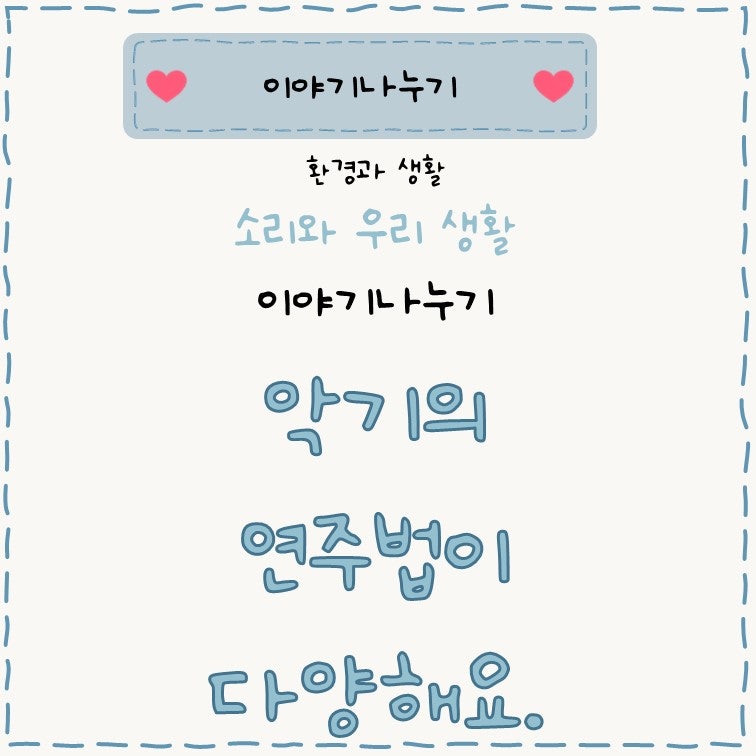 이야기나누기
환경과 생활
소리와 우리 생활
이야기나누기
악기의
연주법이
다양해요.